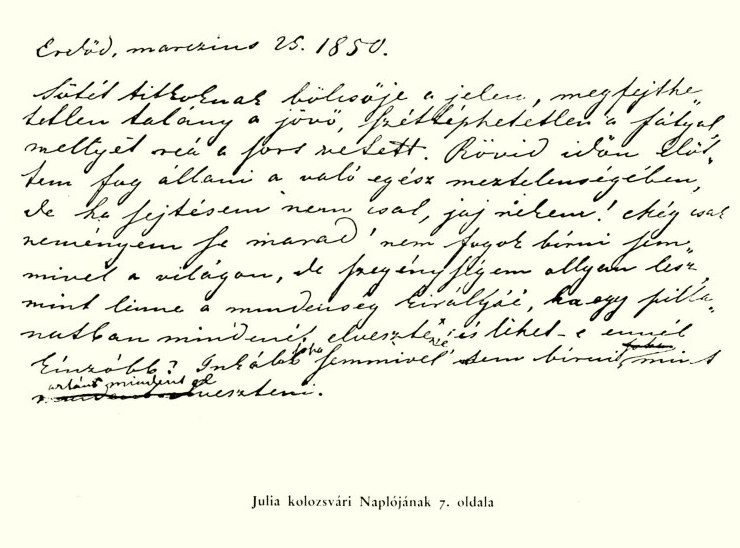 Erdőd, marczius 25. 1850.
Sötét titkoknak bölcsője a jelen, megfejthe„
tetlen talány a jövő, széttéphetetlen a fátyol,
mellyet reá a sors vetett. Rövid időn előt„
tem fog állani a való egész meztelenségében,
de ha sejtésem nem csal, jaj nekem! Még csak
reményem se marad! nem fogok bírni sem„
mivel a világon, de szegénységem ollyan lesz,
mint linne a mindenség királyjáé, ha egy pilla„
natban mindenét elveszte né; és lehet-e ennél
kínzóbb? Inkább soha semmivel sem bírni, mint
aztán mindent el
veszteni.
Julia kolozsvári Naplójának 7. oldala